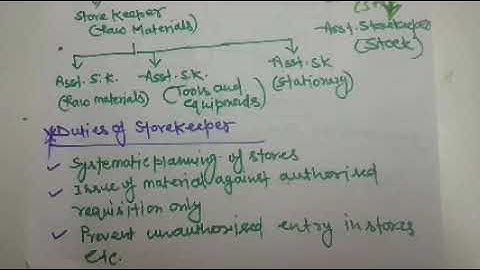 Store Keeper
(Raw Materials)
Asst. Storekeeper
(Stock)
Asst. S.K.
(Raw materials)
Asst. S.K.
(Tools and
equipments)
Asst. SK
(Stationery)
Duties of Storekeeper
✓ Systematic planning of stores
✓ Issue of material against authorised
requisition only
✓ Prevent unauthorised entry in stores
etc.